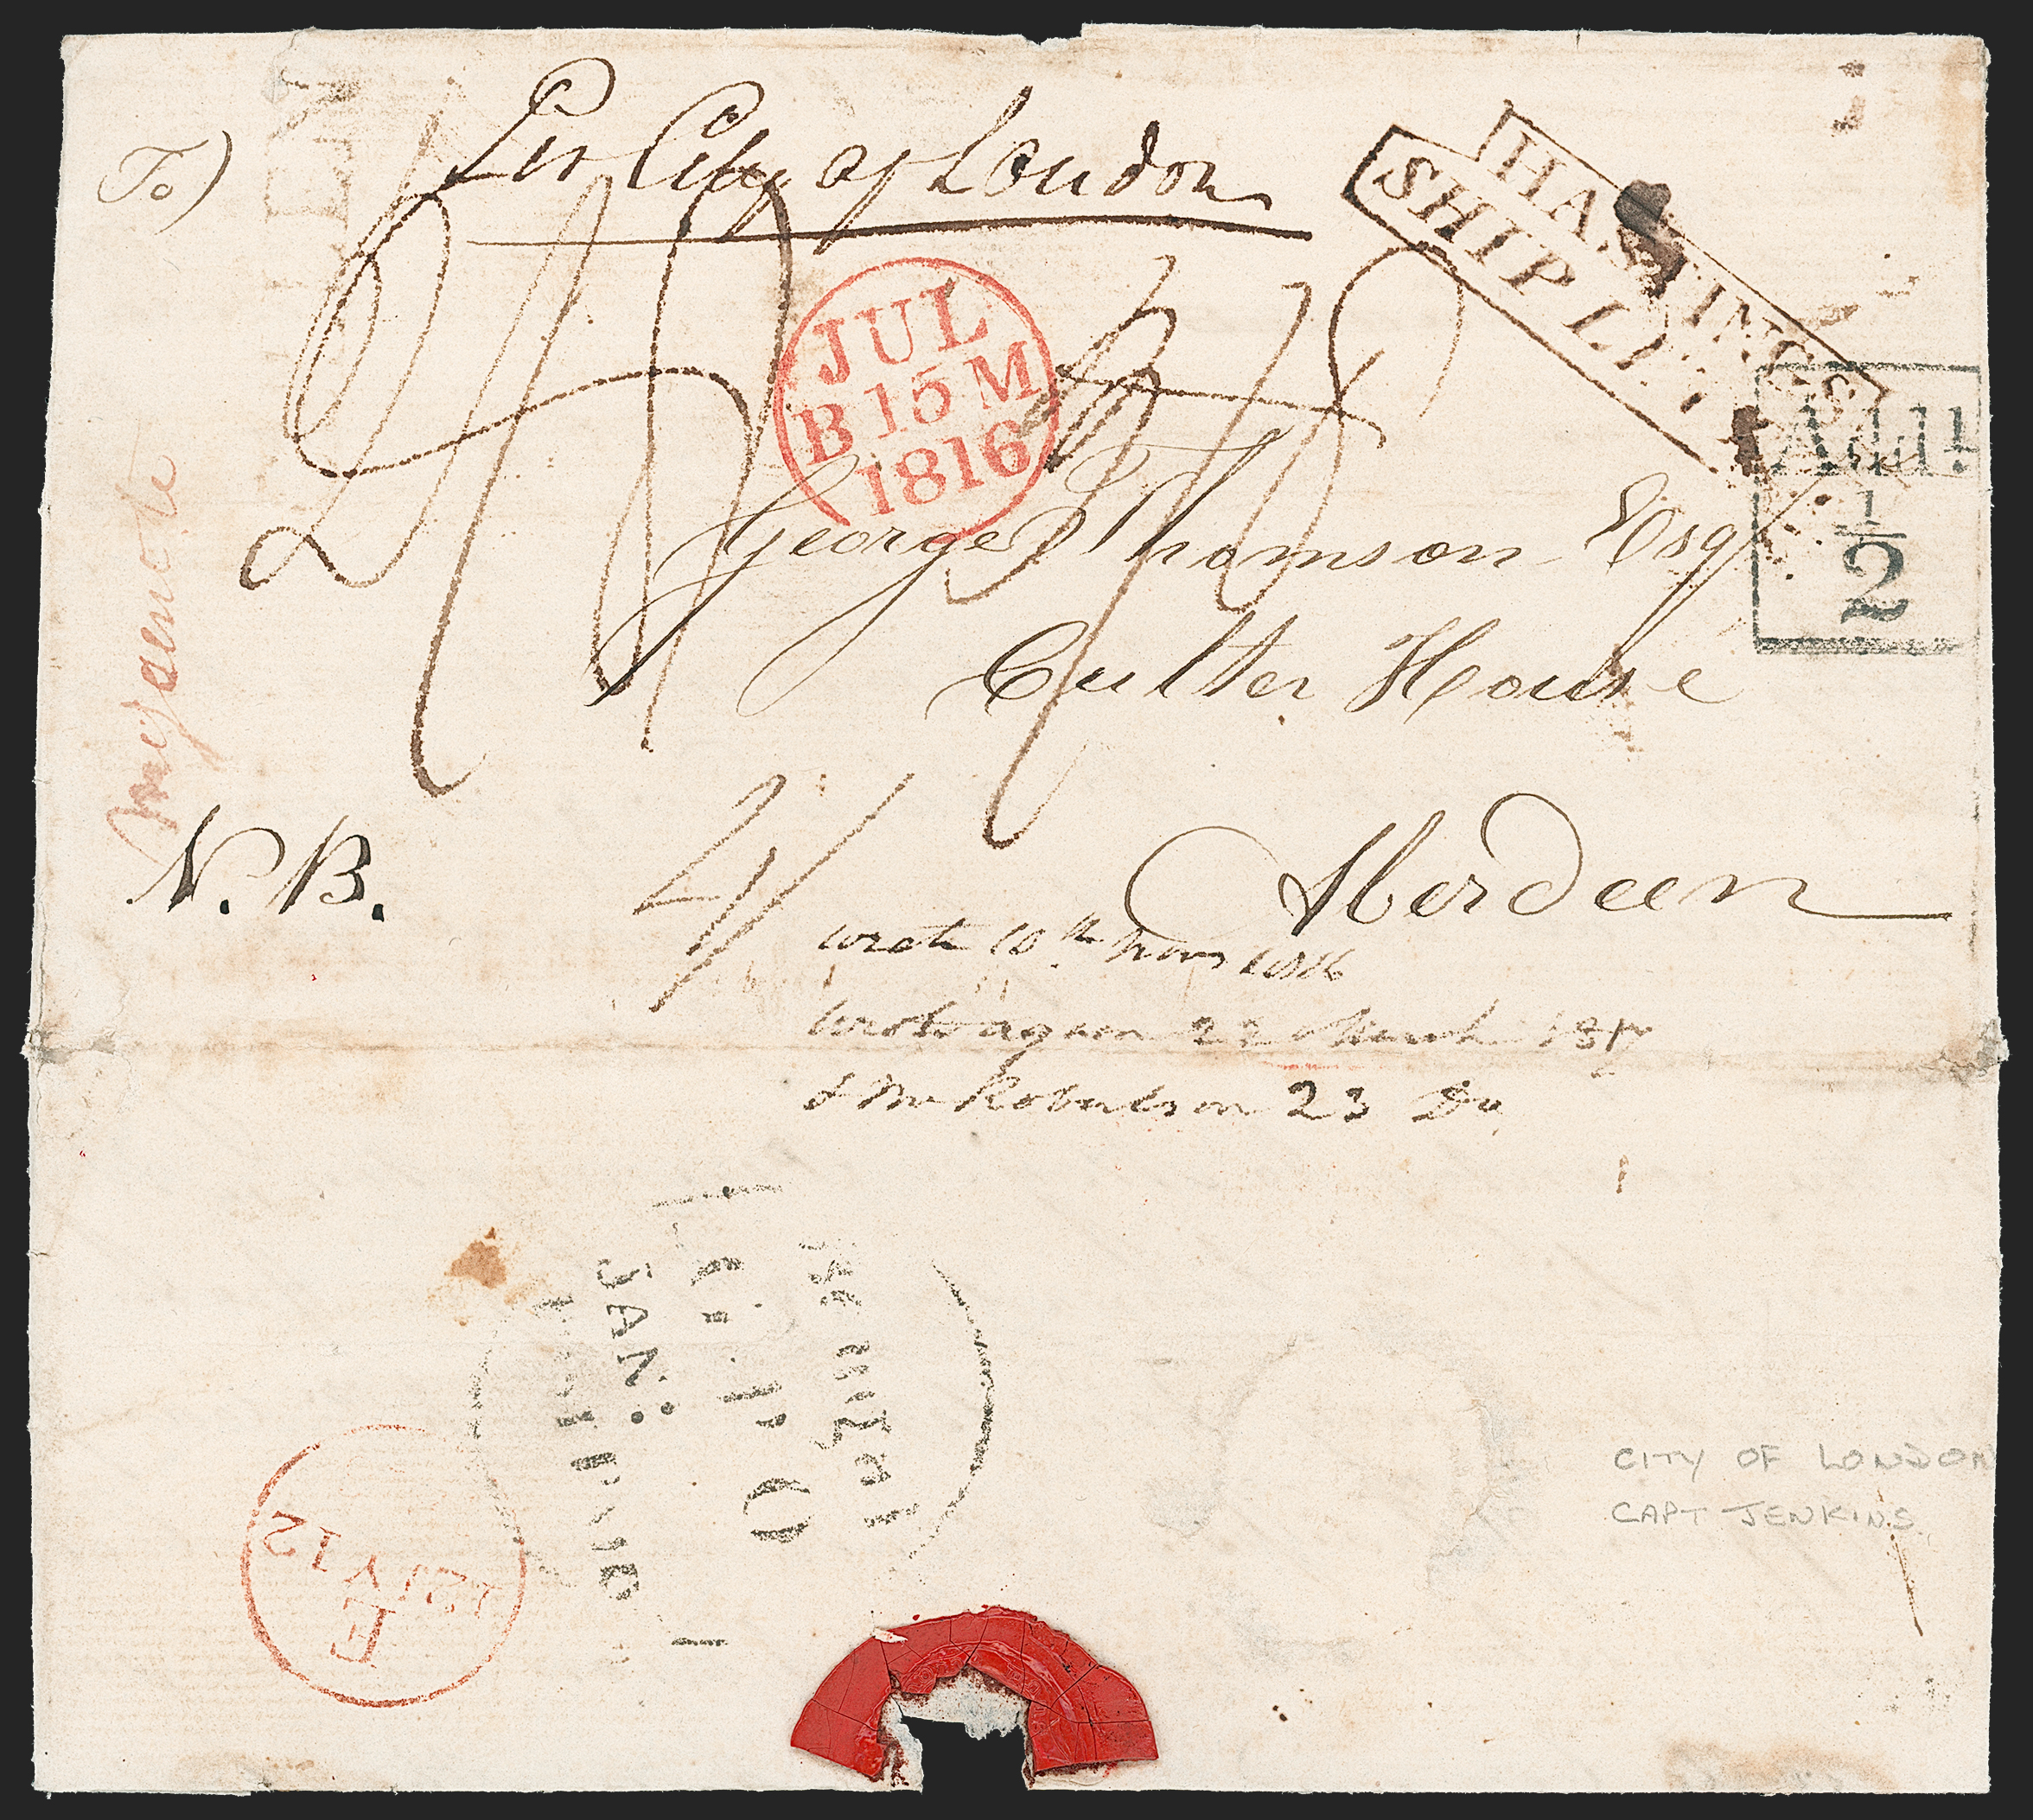 To)
Per City of London
HASTINGS
SHIP LET
JUL
B 15 M
1816
Addl
1/2
George Thomson Esqr
Culter House
N.B.
4/
Aberdeen
wrote 10th Novr 1816
Wrote again 22 March 1817
& Mr Robertson 23 Do
JAN
CITY OF LONDON
CAPT JENKINS
E
12